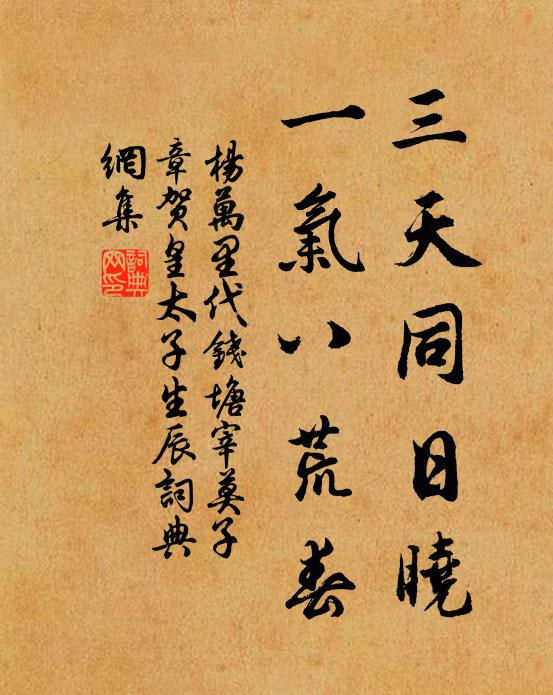 三天同日曉
一氣八荒春
楊萬里代錢塘宰莫子
章賀皇太子生辰詞典
網集
詞典
网印